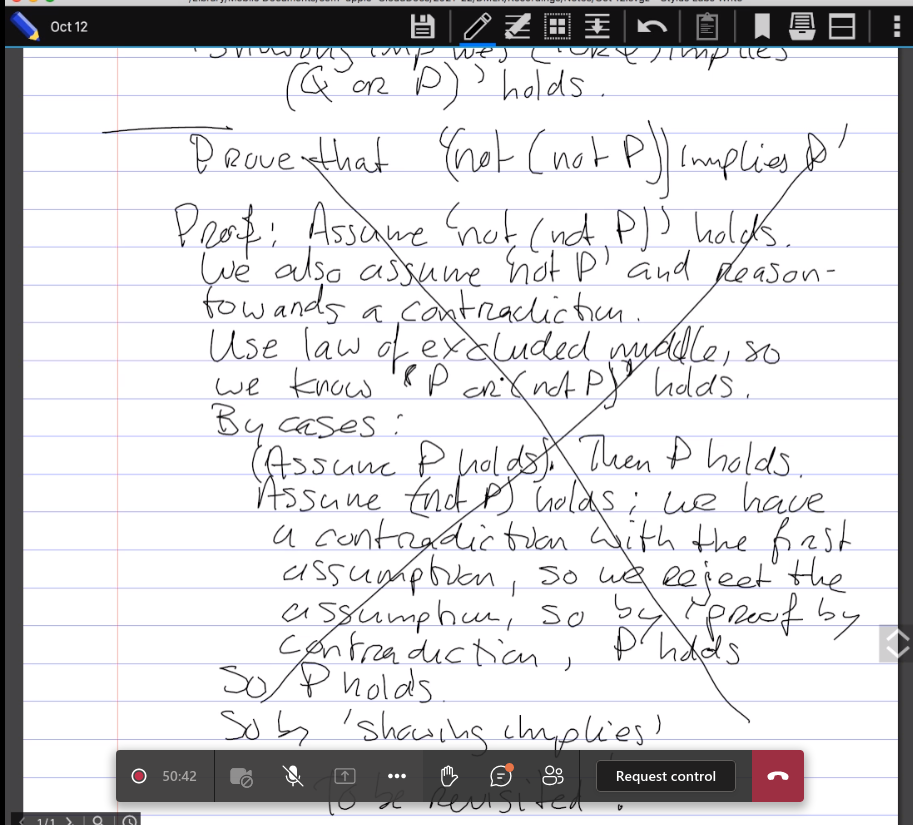 Oct 12
'Showing implies (P or Q) implies
(Q or P)' holds.
Prove that '(not (not P)) implies P'
Proof: Assume 'not (not P)' holds.
We also assume 'not P' and reason
towards a contradiction.
Use law of excluded middle, so
we know 'P or (not P)' holds.
By cases:
(Assume P holds). Then P holds.
Assume (not P) holds; we have
a contradiction with the first
assumption, so we reject the
assumption, so by 'proof by
contradiction, P' holds
So P holds.
So by 'showing implies'
50:42
Request control
To be revisited!
1/1